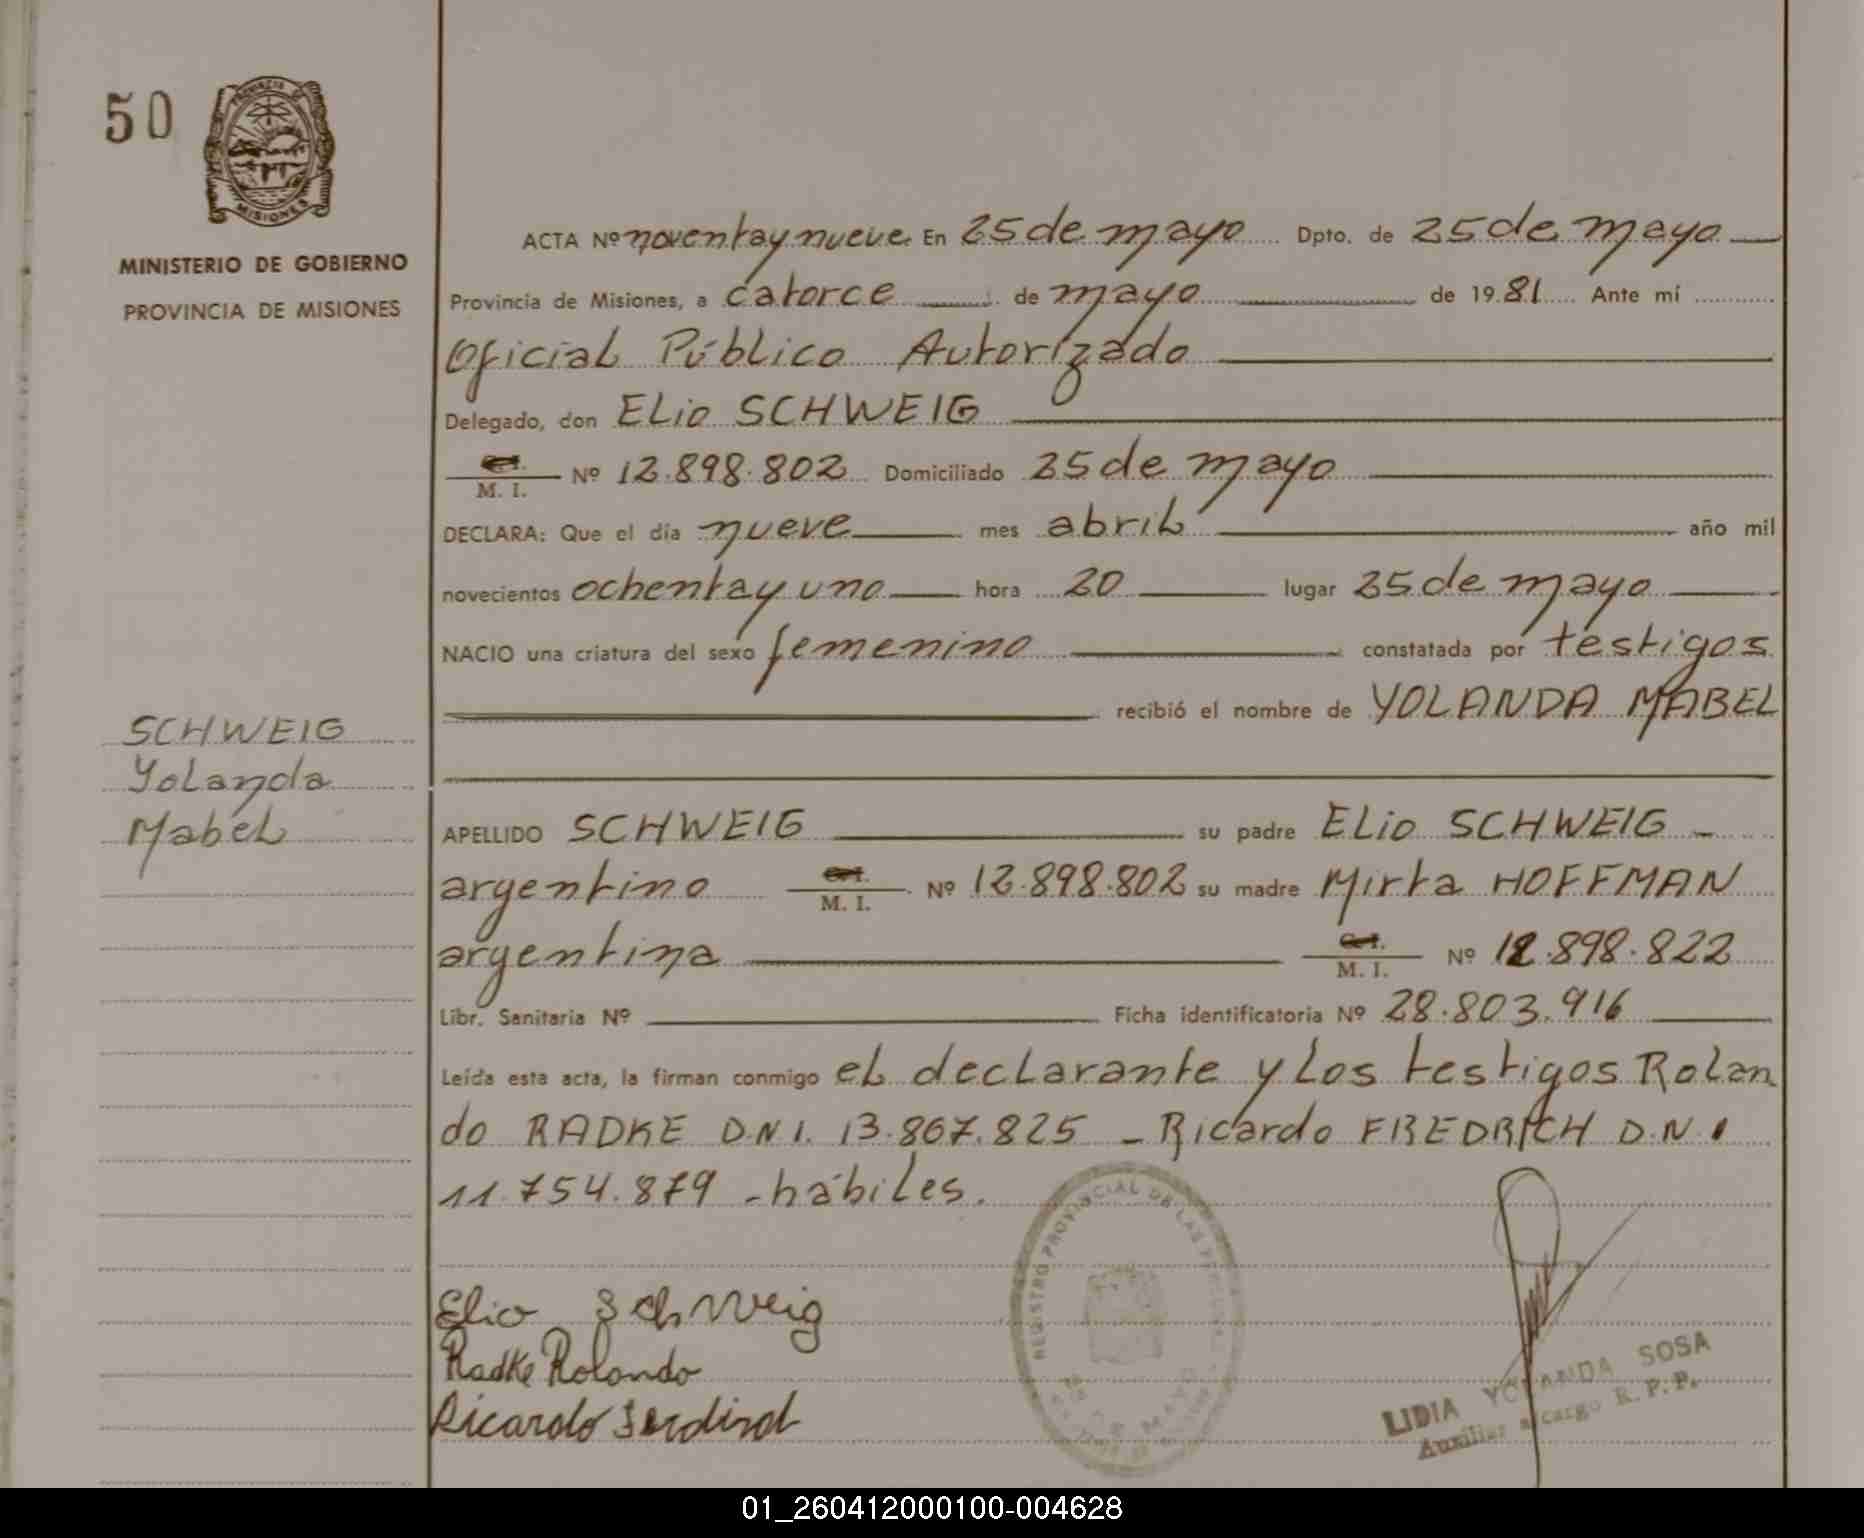 50
PROVINCIA DE
MISIONES
MINISTERIO DE GOBIERNO
PROVINCIA DE MISIONES
SCHWEIG
Yolanda
Mabel
ACTA Nº noventa y nueve En 25 de mayo Dpto. de 25 de mayo
Provincia de Misiones, a catorce de mayo de 1981 Ante mí
Oficial Público Autorizado
Delegado, don ELio SCHWEIG
M. I. Nº 12.898.802 Domiciliado 25 de mayo
DECLARA: Que el día nueve mes abril año mil
novecientos ochenta y uno hora 20 lugar 25 de mayo
NACIO una criatura del sexo femenino constatada por testigos
recibió el nombre de YOLANDA MABEL
APELLIDO SCHWEIG su padre ELio SCHWEIG
argentino M. I. Nº 12.898.802 su madre Mirta HOFFMAN
argentina M. I. Nº 12.898.822
Libr. Sanitaria Nº Ficha identificatoria Nº 28.803.916
Leída esta acta, la firman conmigo el declarante y los testigos Rolan
do RADKE D.N.I. 13.867.825 - Ricardo FREDRICH D.N.I
11.754.879 - hábiles.
Elio Schweig
Radke Rolando
Ricardo
REGISTRO PROVINCIAL DE LAS PERSONAS
25 DE MAYO
LIDIA YOLANDA SOSA
Auxiliar a cargo R. P. P.
01_260412000100-004628